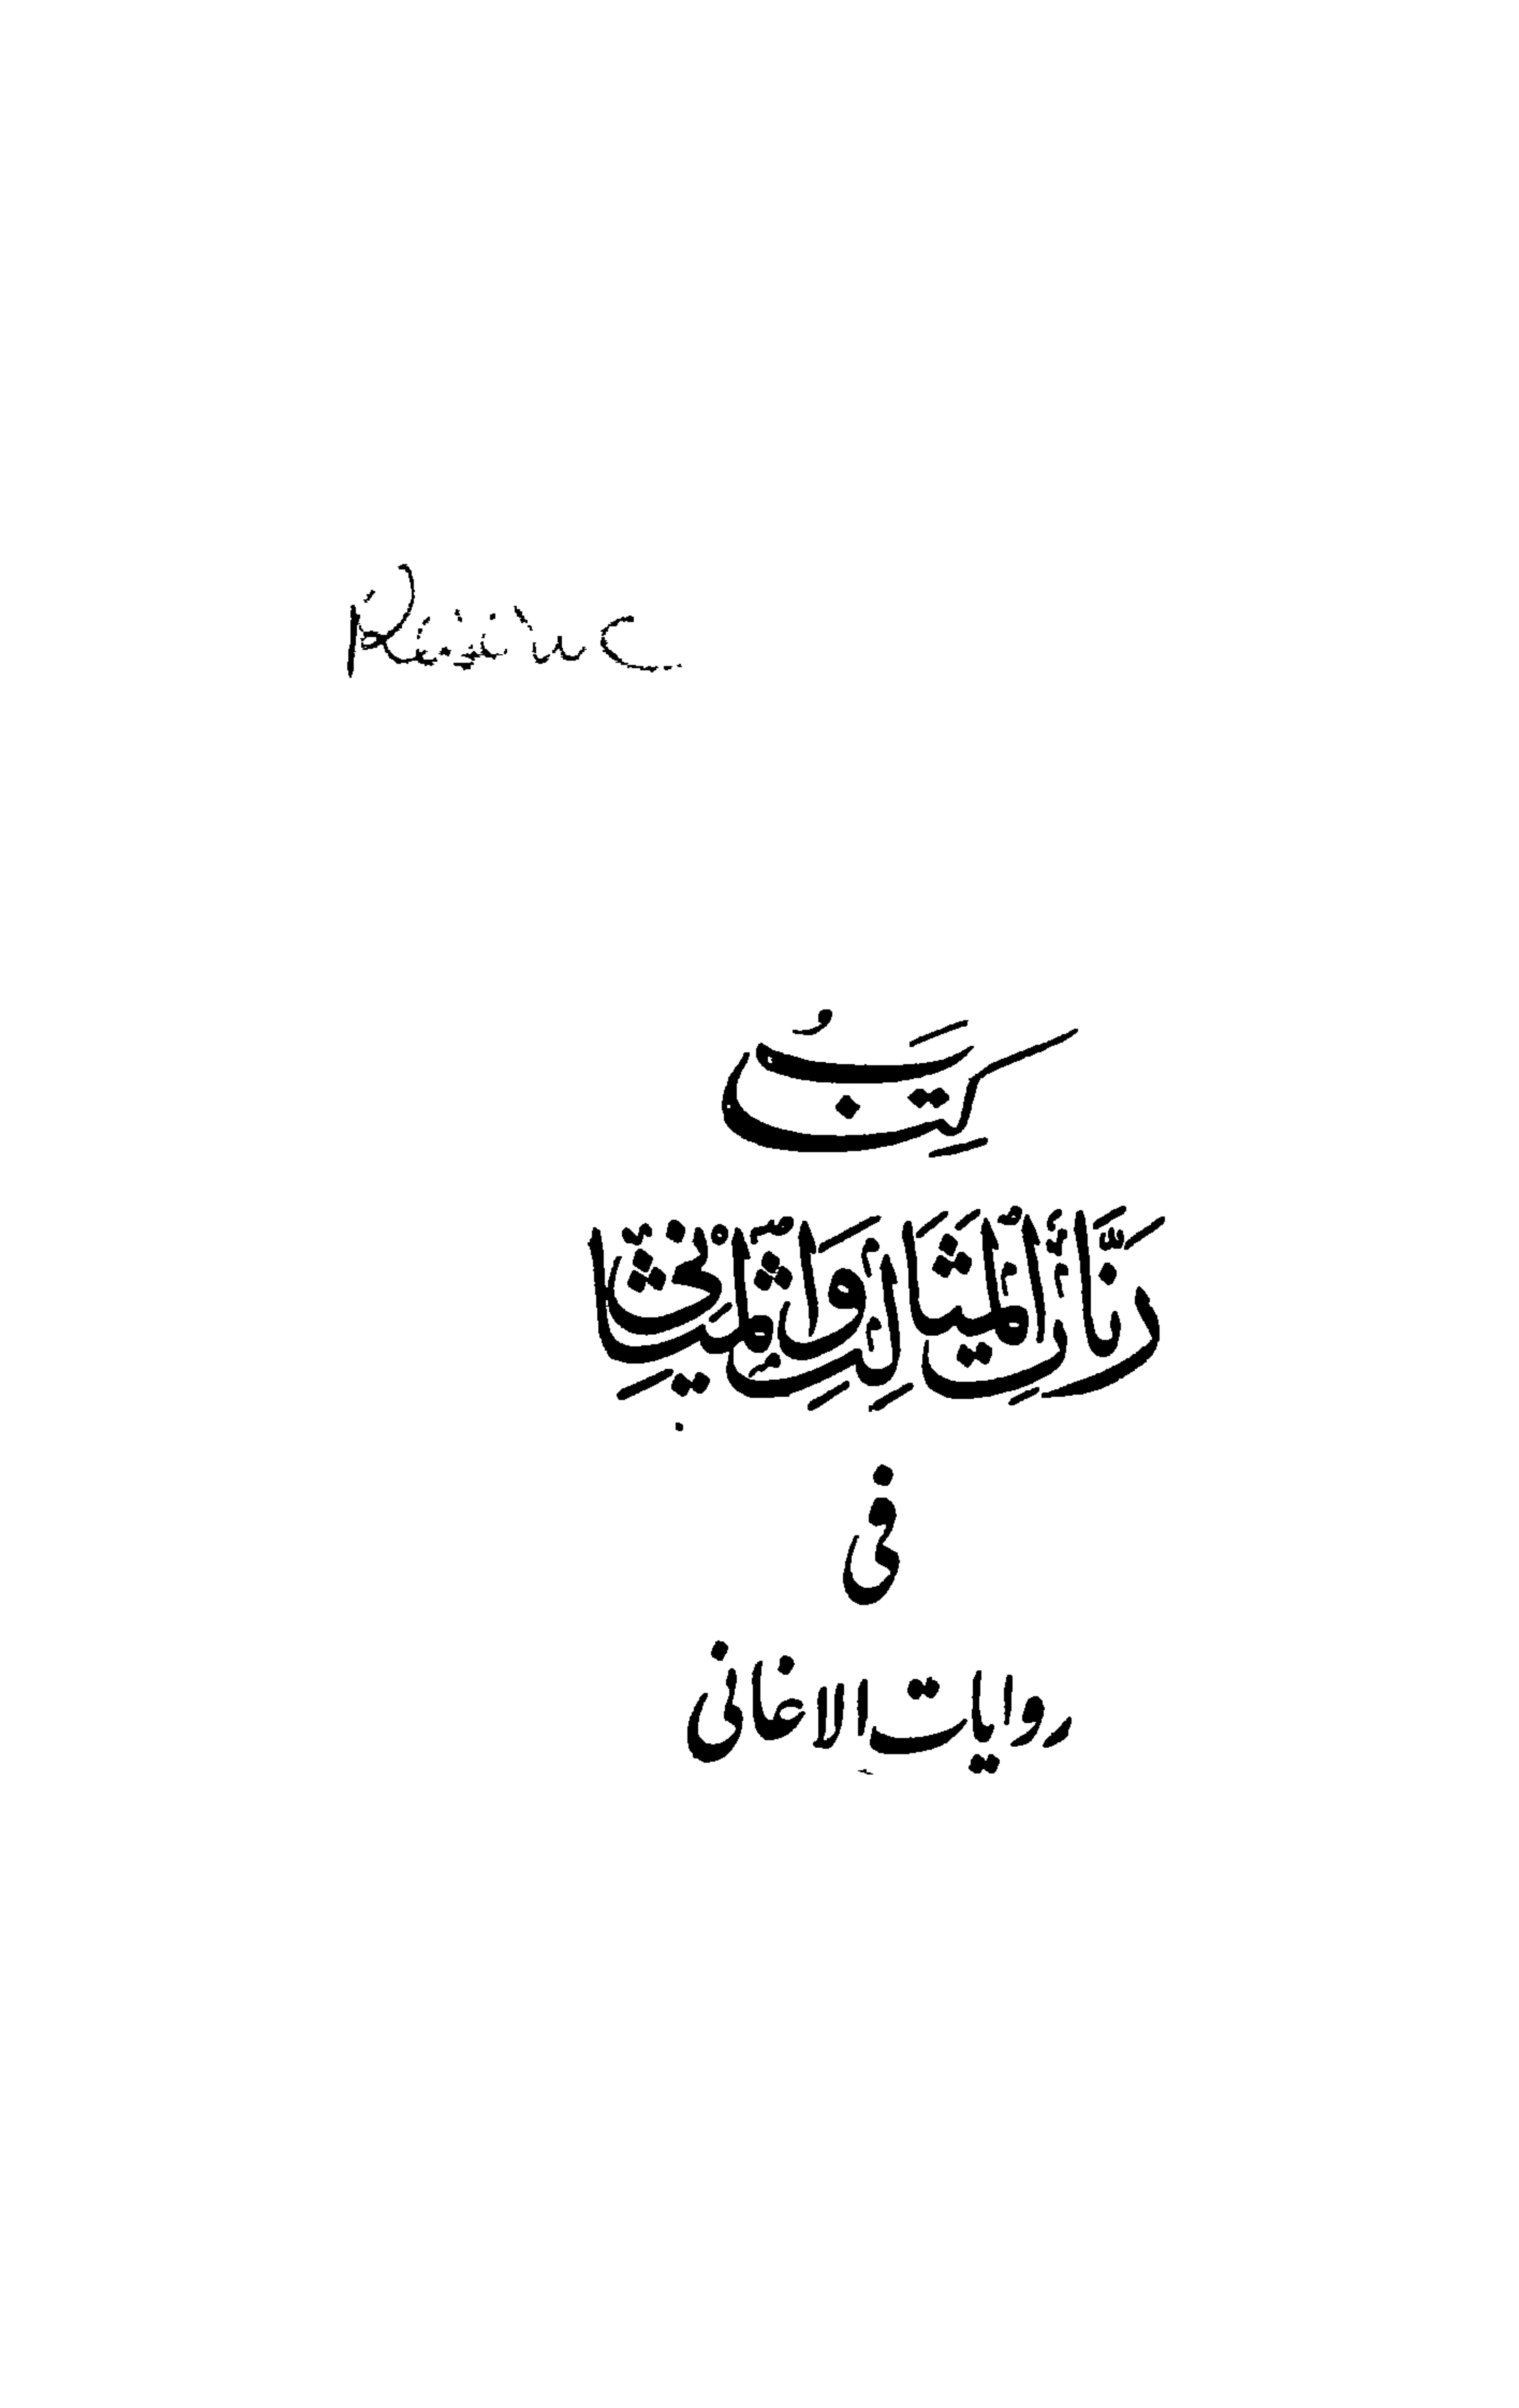 كِتَبُ
رَنَّاتُ الْمَثَالِثِ وَالْمَثَانِي
فى
روايات الاغانى